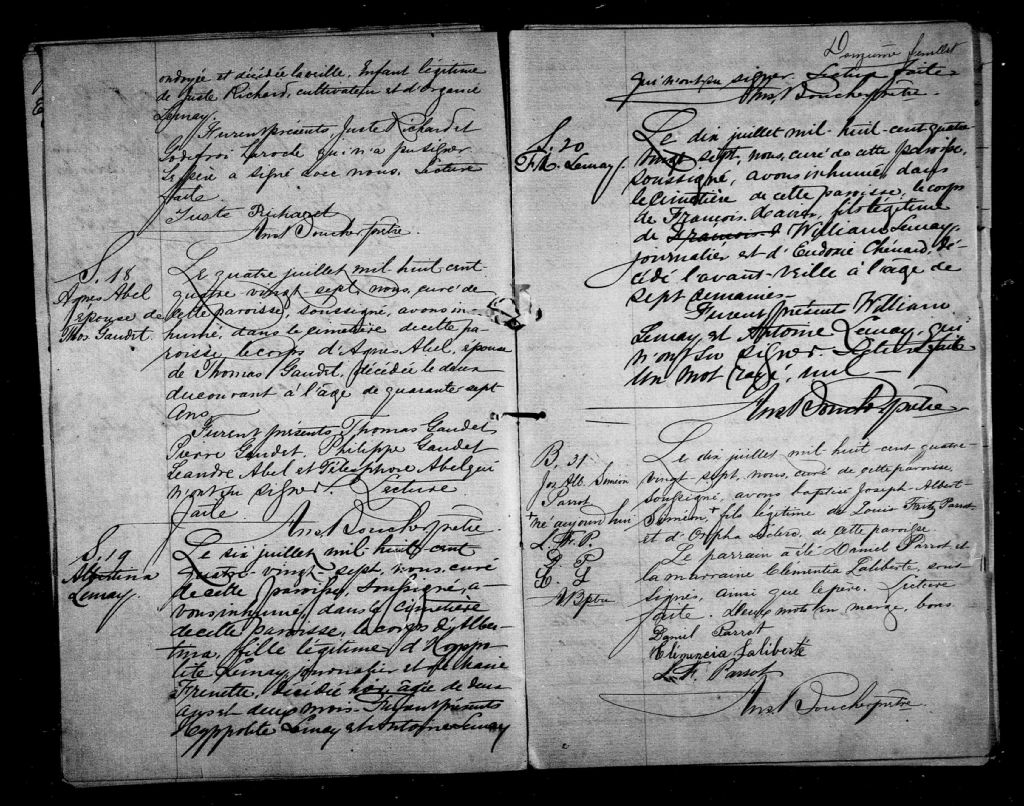 ondoyée et décédée la veille. Enfant légitime
de Juste Richard, cultivateur et d'
Lemay.
Furent présents, Juste Richard et
Godefroi Laroche qui n'a pu signer
Le père a signé avec nous. Lecture
faite.
Juste Richard
Ans. Boucher ptre.
S. 18
Agnes Abel
Epouse de
Thos Gaudet
Le quatre juillet mil huit cent
quatre vingt sept, nous, curé de
cette paroisse, soussigné, avons in
humé, dans le cimetière de cette pa-
roisse, le corps d'Agnes Abel, épouse
de Thomas Gaudet, décédée le deux
du courant à l'âge de quarante sept
Ans.
Furent présents Thomas Gaudet
Pierre Gaudet, Philippe Gaudet
Leandre Abel et Télesphore Abel qui
n'ont su signer. Lecture
faite
Ans. Boucher ptre.
S. 19
Albertina
Lemay.
Le six juillet mil huit cent
quatre-vingt sept, nous, curé
de cette paroisse, soussigné, a-
vons inhumé dans le cimetière
de cette paroisse, le corps d'Alber-
tina, fille légitime d'Hyppo-
lite Lemay, journalier et de
Frenette, décédée hier âgée de deux
ans et deux mois. Furent présents
Hyppolite Lemay et Antoine Lemay
Douzième feuillet
qui n'ont su signer. Lecture faite
Ans. Boucher ptre.
S. 20
F. X. Lemay
Le dix juillet mil-huit-cent quatre
vingt sept, nous, curé de cette paroisse,
soussigné, avons inhumé dans
le cimetière de cette paroisse, le corps
de François-Xavier, fils légitime
de François William Lemay,
journalier et d'Eudoxie Chénard, dé-
cédé l'avant-veille à l'âge de
sept semaines.
Furent présents William
Lemay, et Antoine Lemay, qui
n'ont su signer. Lecture faite
Un mot rayé, nul
Ans. Boucher ptre
B. 31
Jos Alb. Siméon
Parrot
+né aujourd'hui
L. F. P.
D. P.
C. L
AB ptre
Le dix juillet mil huit-cent quatre
vingt-sept, nous, curé de cette paroisse,
soussigné, avons baptisé Joseph-Albert-
Siméon,+ fils légitime de Louis Fritz Parrot
et d'Orpha Leclerc, de cette paroisse
Le parrain a été Daniel Parrot et
la marraine Clémentia Laliberté, sous-
signés, ainsi que le père. Lecture
faite. Deux mots en marge, bons.
Daniel Parrot
Clémencia Laliberté
L. F. Parrot
Ans. Boucher ptre.